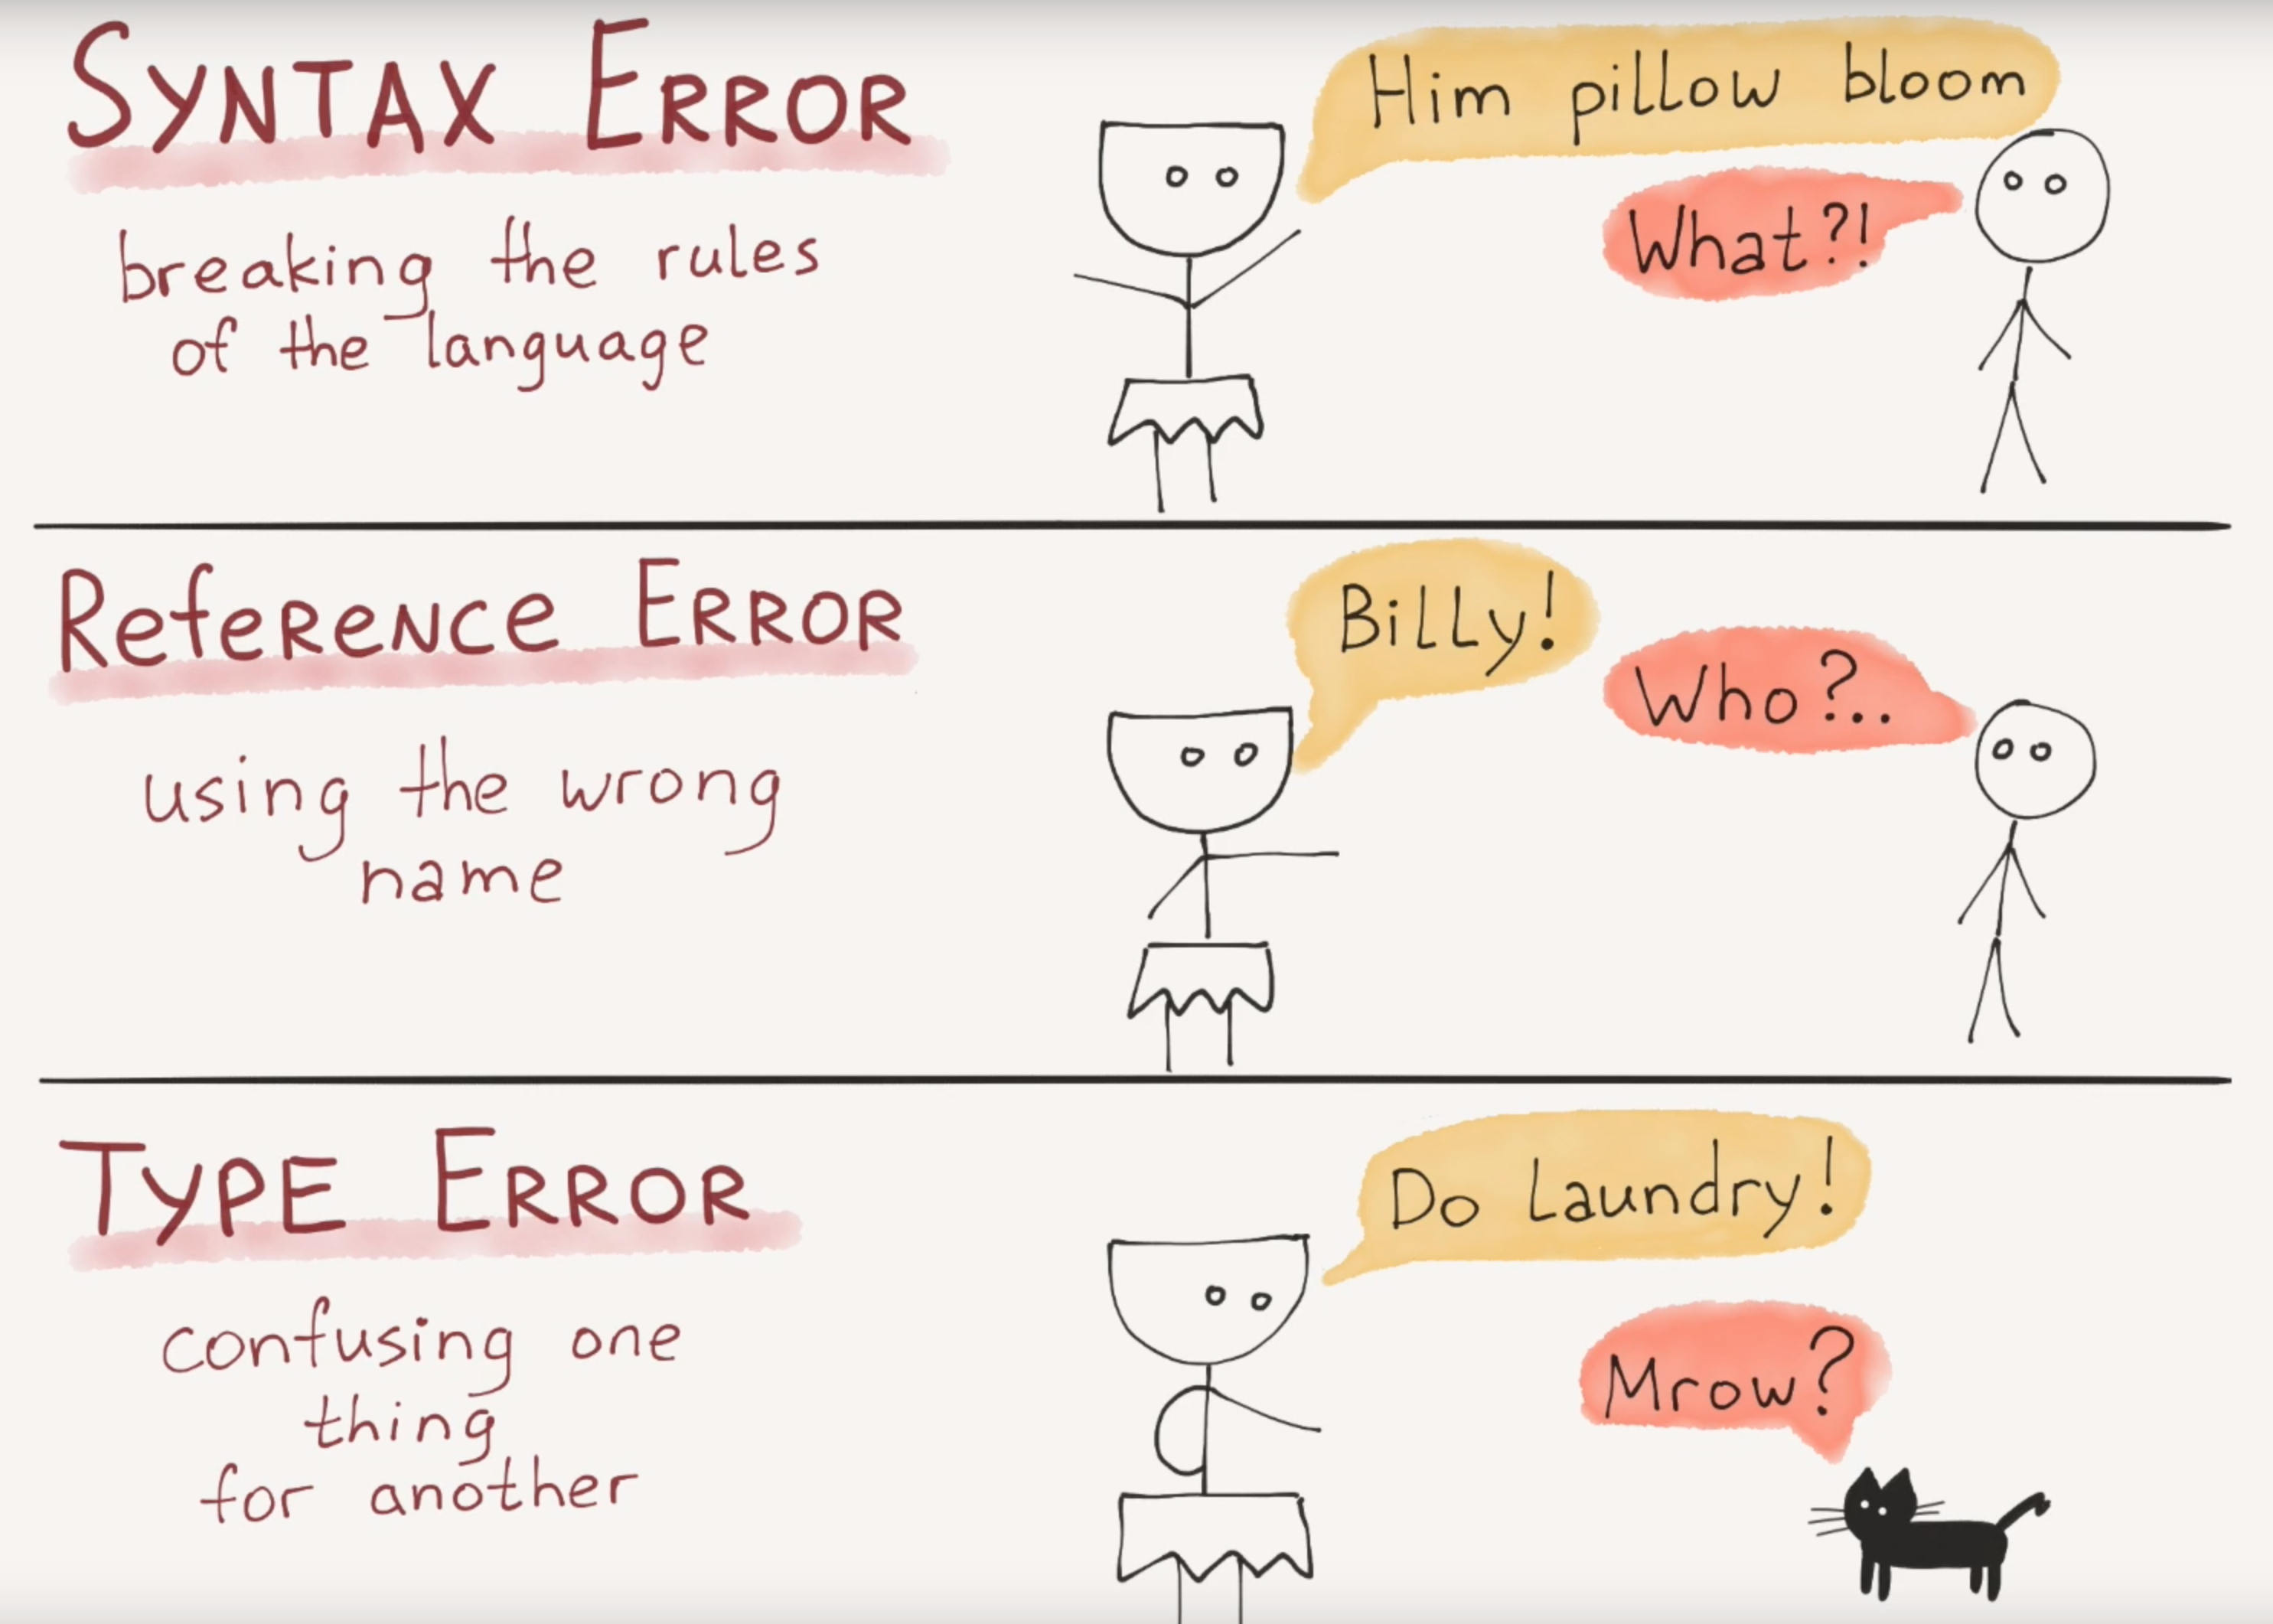 SYNTAX ERROR
breaking the rules
of the language
Him pillow bloom
What?!
Reference Error
using the wrong
name
Billy!
Who?..
TYPE ERROR
confusing one
thing
for another
Do Laundry!
Mrow?